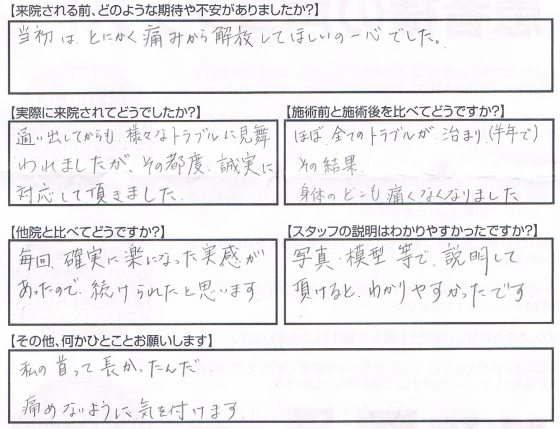 【来院される前、どのような期待や不安がありましたか?】
当初は、とにかく痛みから解放してほしいの一心でした。
【実際に来院されてどうでしたか?】
通い出してからも、様々なトラブルに見舞
われましたが、その都度、誠実に
対応して頂きました。
【施術前と施術後を比べてどうですか?】
ほぼ、全てのトラブルが治まり、(半年で)
その結果、
身体のどこも痛くなくなりました
【他院と比べてどうですか?】
毎回、確実に楽になった実感が
あったので、続けられたと思います
【スタッフの説明はわかりやすかったですか?】
写真・模型等で、説明して
頂けると、わかりやすかったです
【その他、何かひとことお願いします】
私の首って長かったんだ
痛めないように気を付けます